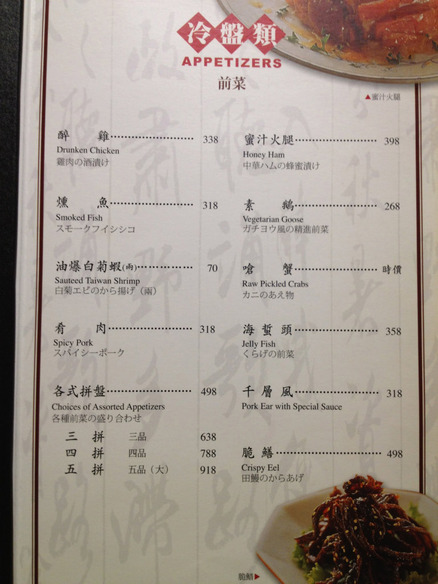 冷盤類
APPETIZERS
前菜
▲蜜汁火腿
醉 雞 338
Drunken Chicken
雞肉の酒漬け
燻 魚 318
Smoked Fish
スモークフイシシコ
油爆白菊蝦(兩) 70
Sauteed Taiwan Shrimp
白菊エビのから揚げ（兩）
肴 肉 318
Spicy Pork
スパイシーポーク
各式拼盤 498
Choices of Assorted Appetizers
各種前菜の盛り合わせ
三 拼 三品 638
四 拼 四品 788
五 拼 五品（大） 918
蜜汁火腿 398
Honey Ham
中華ハムの蜂蜜漬け
素 鵝 268
Vegetarian Goose
ガチヨウ風の精進前菜
嗆 蟹 時價
Raw Pickled Crabs
カニのあえ物
海蜇頭 358
Jelly Fish
くらげの前菜
千層風 318
Pork Ear with Special Sauce
脆鱔 498
Crispy Eel
田鰻のからあげ
脆鱔▶